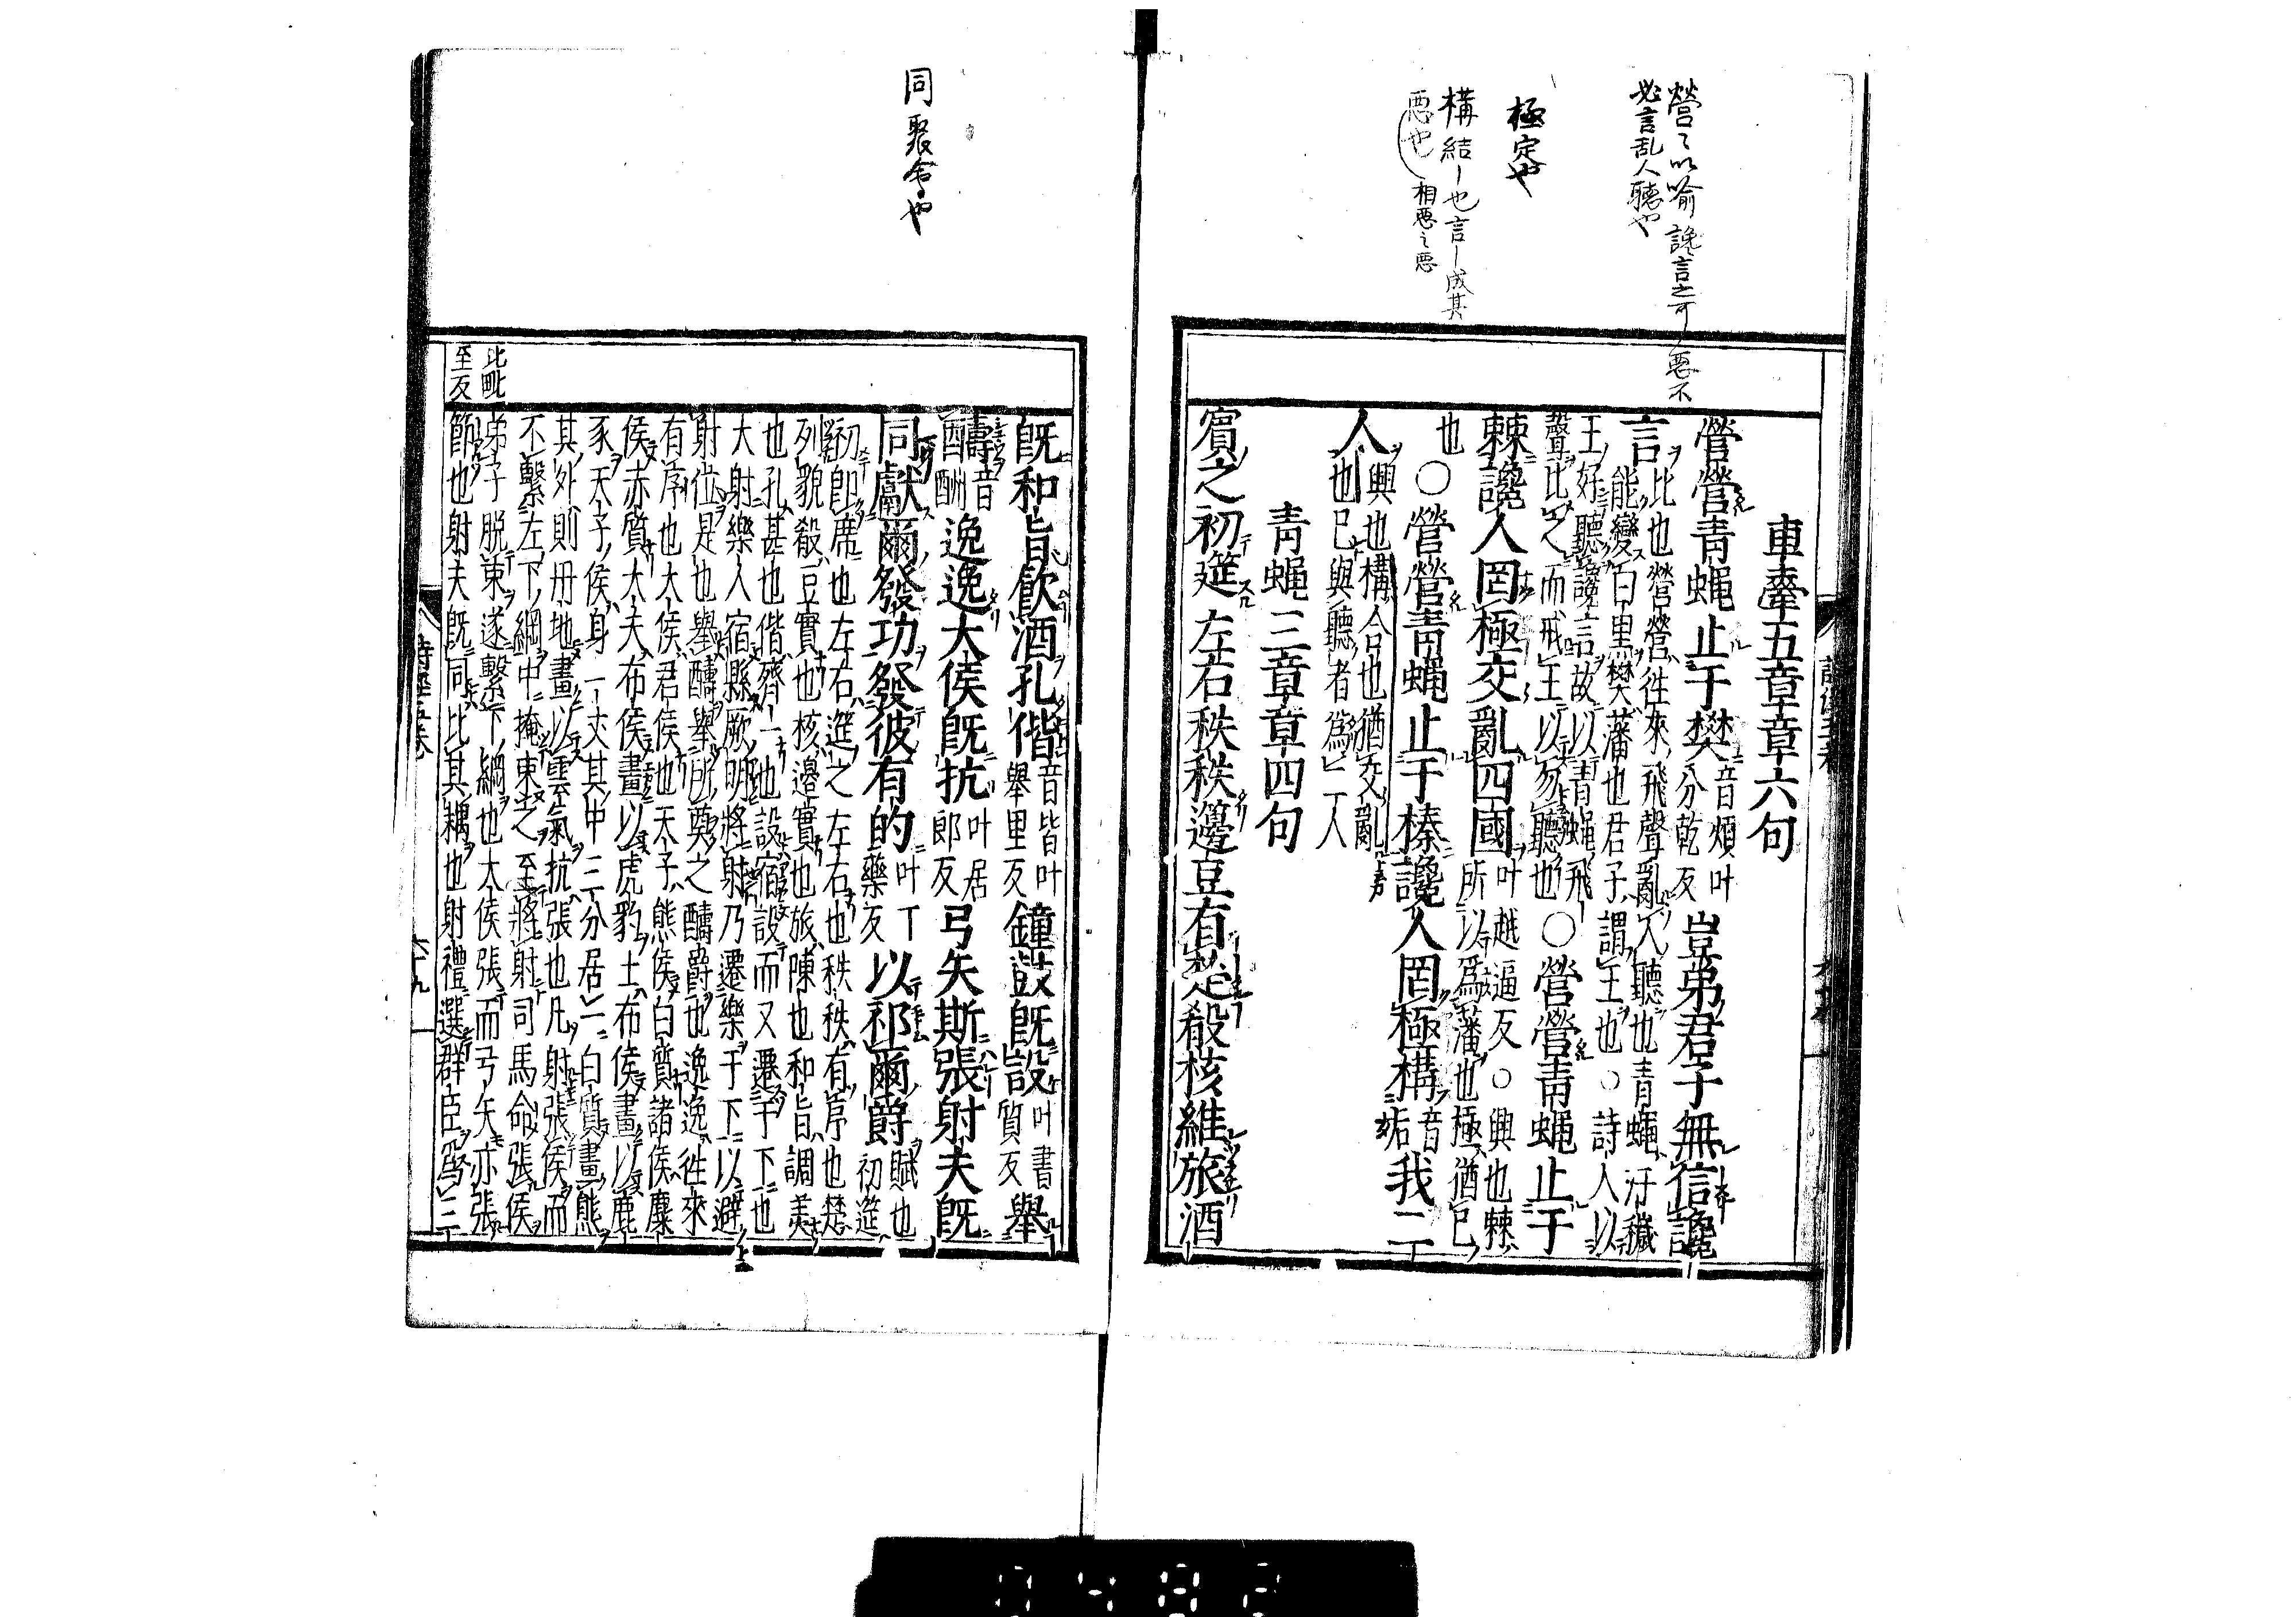 營〻以喩讒言之可惡不
必言乱人聽也
極定也
構結一也言一成其
惡也 相惡之惡
車舝五章章六句
營營青蠅止于樊音煩叶分乾反豈弟君子無信讒
言比也營營往來飛聲亂人聽也青蠅汙穢能變白黑樊藩也君子謂王也○詩人以
王好聽讒言故以青蠅飛
聲比之而戒王以勿聽也○營營青蠅止于
棘讒人罔極交亂四國叶越逼反○興也棘所以爲藩也極猶已
也○營營青蠅止于榛讒人罔極構音姤我二
人興也構合也猶交亂也已與聽者爲二人
青蠅三章章四句
賓之初筵左右秩秩籩豆有楚殽核維旅酒
同聚會也
旣和旨飮酒孔偕音皆叶舉里反鐘鼓旣設叶書質反舉
醻音酬逸逸大侯旣抗叶居郎反弓矢斯張射夫旣
同獻爾發功發彼有的叶丁藥反以祈爾爵賦也初筵
初卽席也左右筵之左右也秩秩有序也楚
列貌殽豆實也核籩實也旅陳也和旨調美
也孔甚也偕齊一也設宿設而又遷于下也
大射樂人宿縣厥明將射乃遷樂于下以避
射位是也舉醻舉所奠之醻爵也逸逸往來
有序也大侯君侯也天子熊侯白質諸侯麋
侯赤質大夫布侯畫以虎豹士布侯畫以鹿
豕天子侯身一丈其中三分居一白質畫熊
其外則丹地畫以雲氣抗張也凡射張侯而
不繫左下綱中掩束之至將射司馬命張侯
弟子脫束遂繫下綱也大侯張而弓矢亦張
節也射夫旣同比其耦也射禮選群臣爲三
比毗
至反